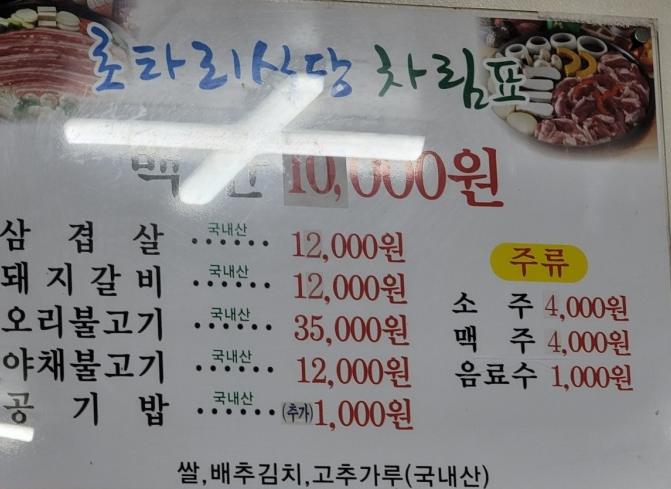 로타리식당 차림표
백반 10,000원
삼 겹 살 ······ 국내산 12,000원
돼지갈비 ······ 국내산 12,000원
오리불고기 ······ 국내산 35,000원
야채불고기 ······ 국내산 12,000원
공 기 밥 ······ 국내산 (추가)1,000원
주류
소 주 4,000원
맥 주 4,000원
음료수 1,000원
쌀,배추김치,고추가루(국내산)